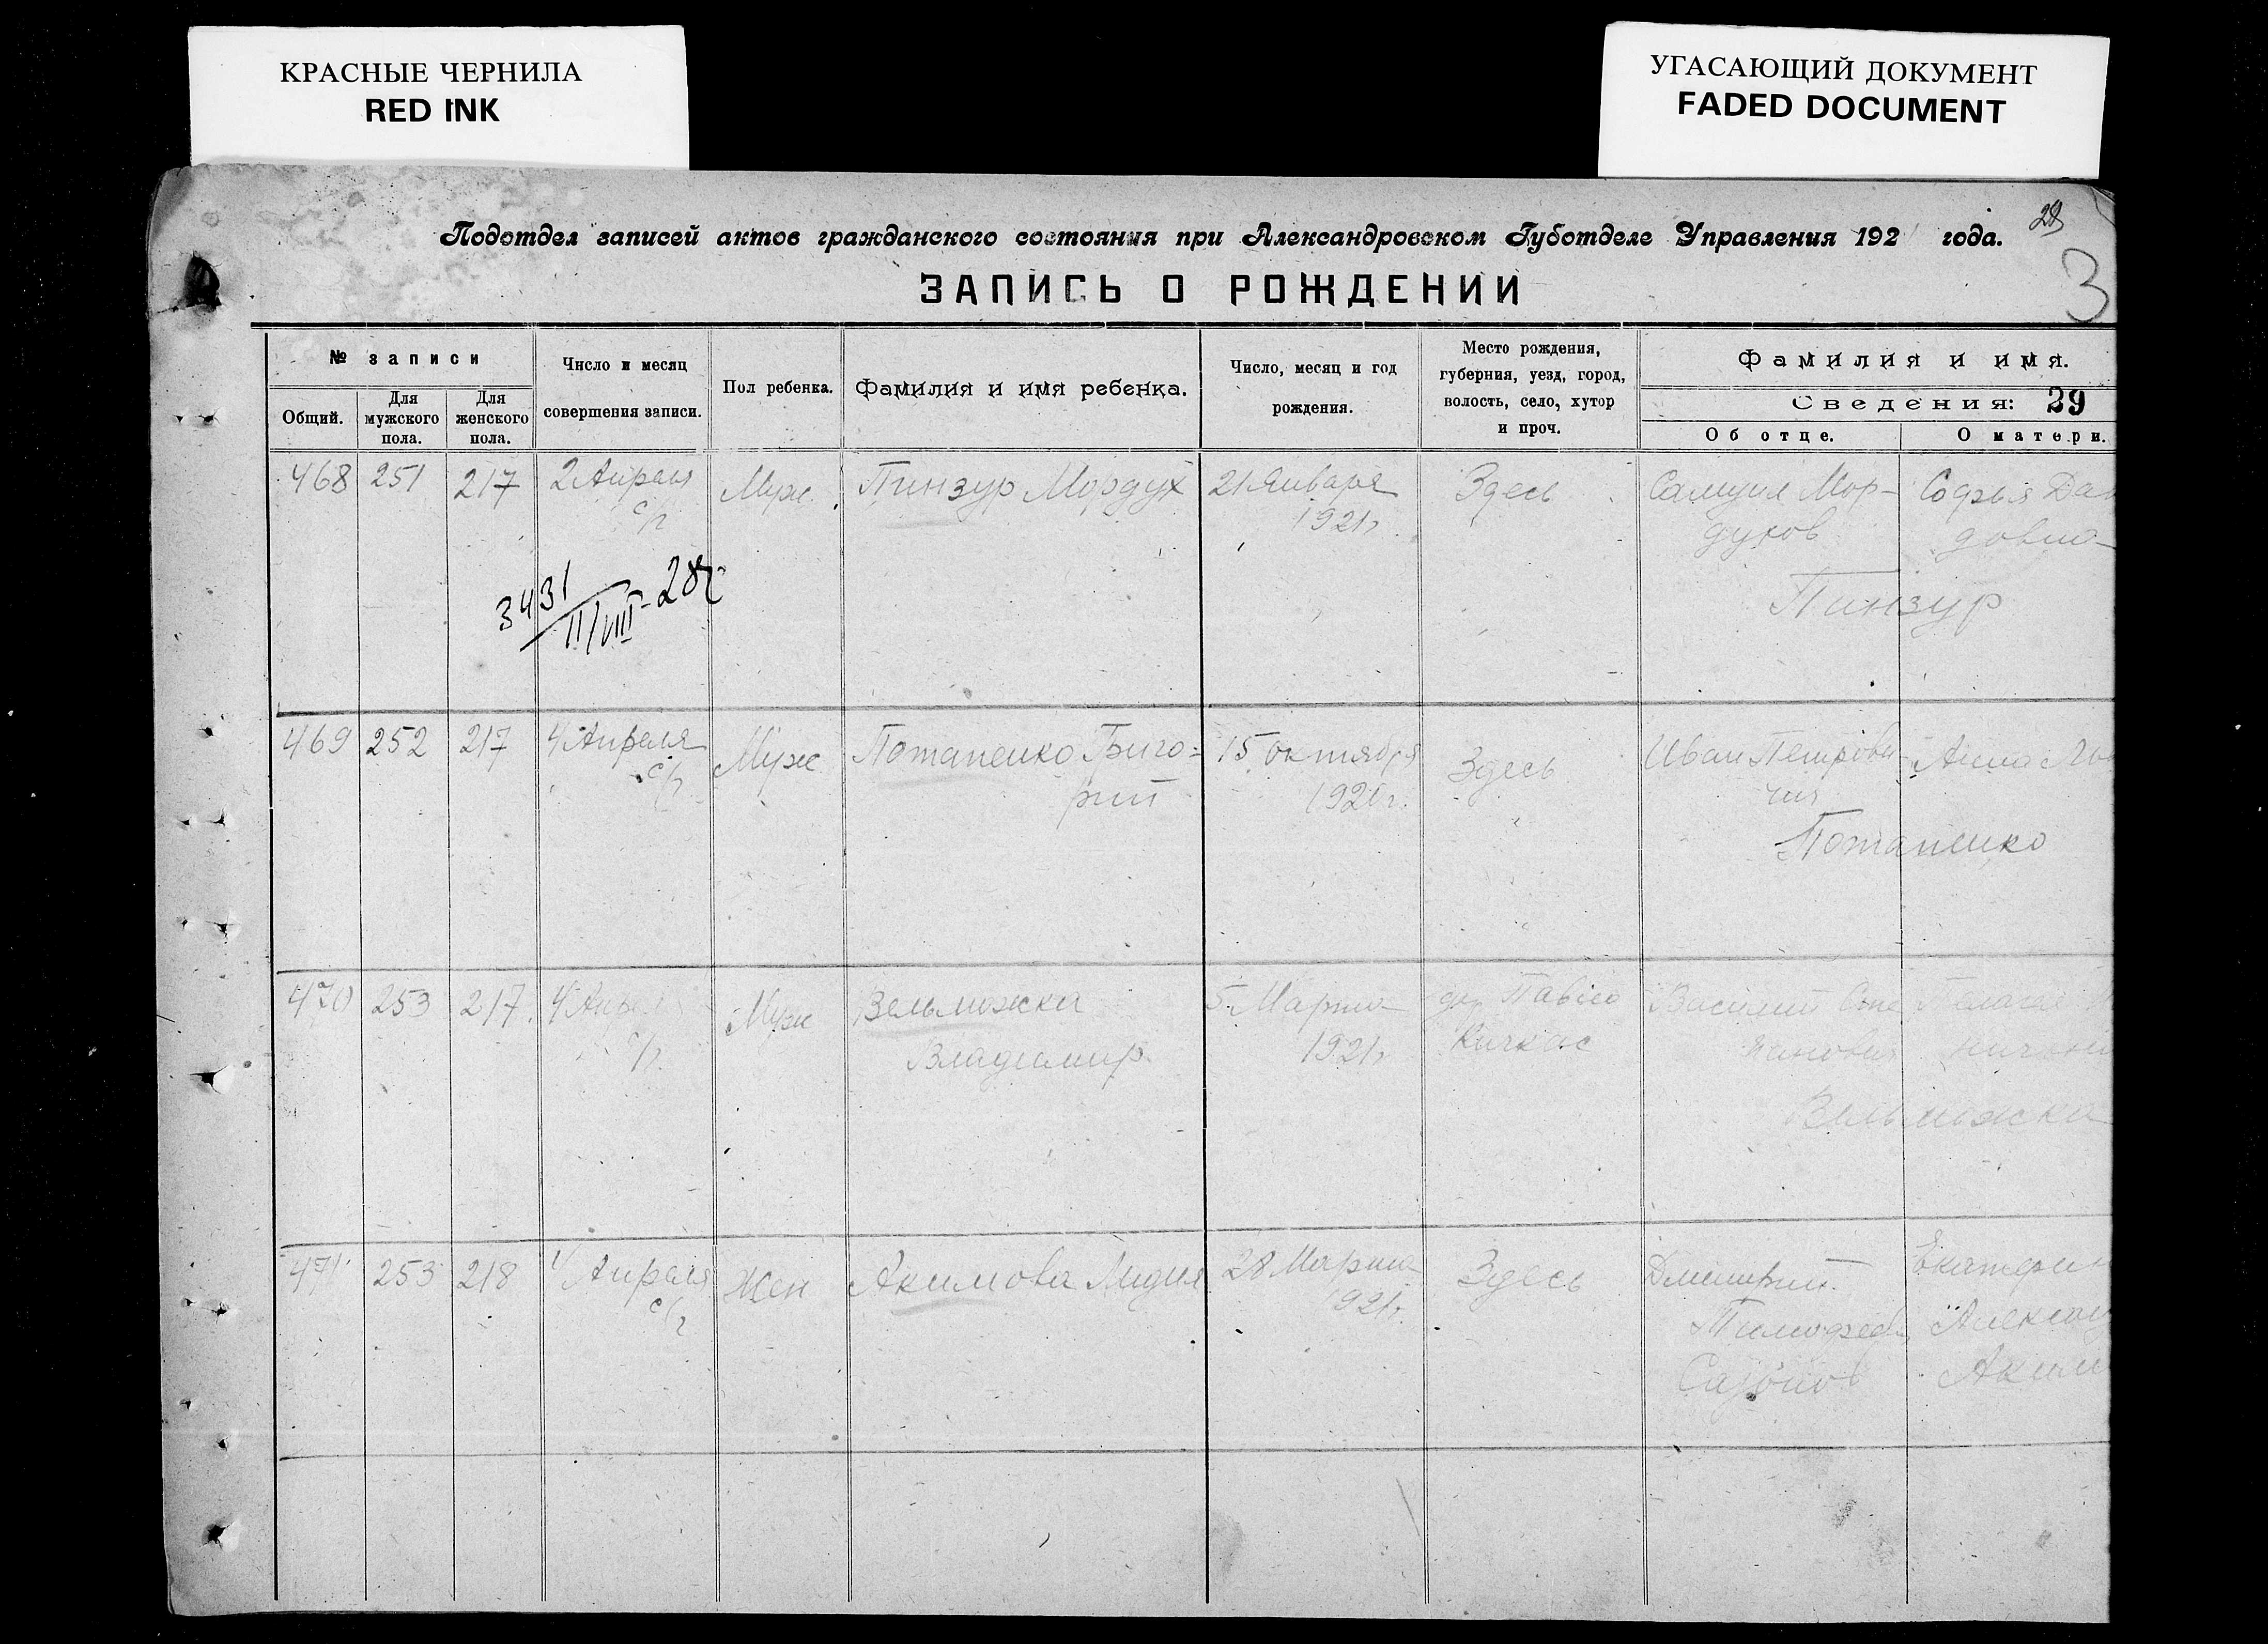 КРАСНЫЕ ЧЕРНИЛА
RED INK
УГАСАЮЩИЙ ДОКУМЕНТ
FADED DOCUMENT
28
Подотдел записей актов гражданского состояния при Александровском Губотделе Управления 192 года.
3
ЗАПИСЬ О РОЖДЕНИИ
№ записи
Общий.
Для мужского пола.
Для женского пола.
Число и месяц
совершения записи.
Пол ребенка.
Фамилия и имя ребенка.
Число, месяц и год
рождения.
Место рождения,
губерния, уезд, город,
волость, село, хутор
и проч.
Фамилия и имя.
Сведения: 29
Об отце.
О матери.
468 251 217 2 Апреля Муж. Пинзур Мордух 21 Января Здесь Самуил Мор- Софья Дав
с/г 1921г. духов довна
Пинзур
3431
II/VIII-28г
469 252 217 4 Апреля Муж Потапенко Григо- 15 октября Здесь Иван Петрови- Анна
с/г рий 1920г. чия
Потапенко
470 253 217 4 Апрел Муж Вельможка 5 Марта Павло Василий Сте Пелагея
с/г. Владимир 1921г. Кичкас панович ничон
Вельможка
471 253 218 4 Апреля Жен Акимова Лидия 28 Марта Здесь Дмитрий Екатерин
с/г 1921г. Тимофеев Алексан
Сазонов Аким